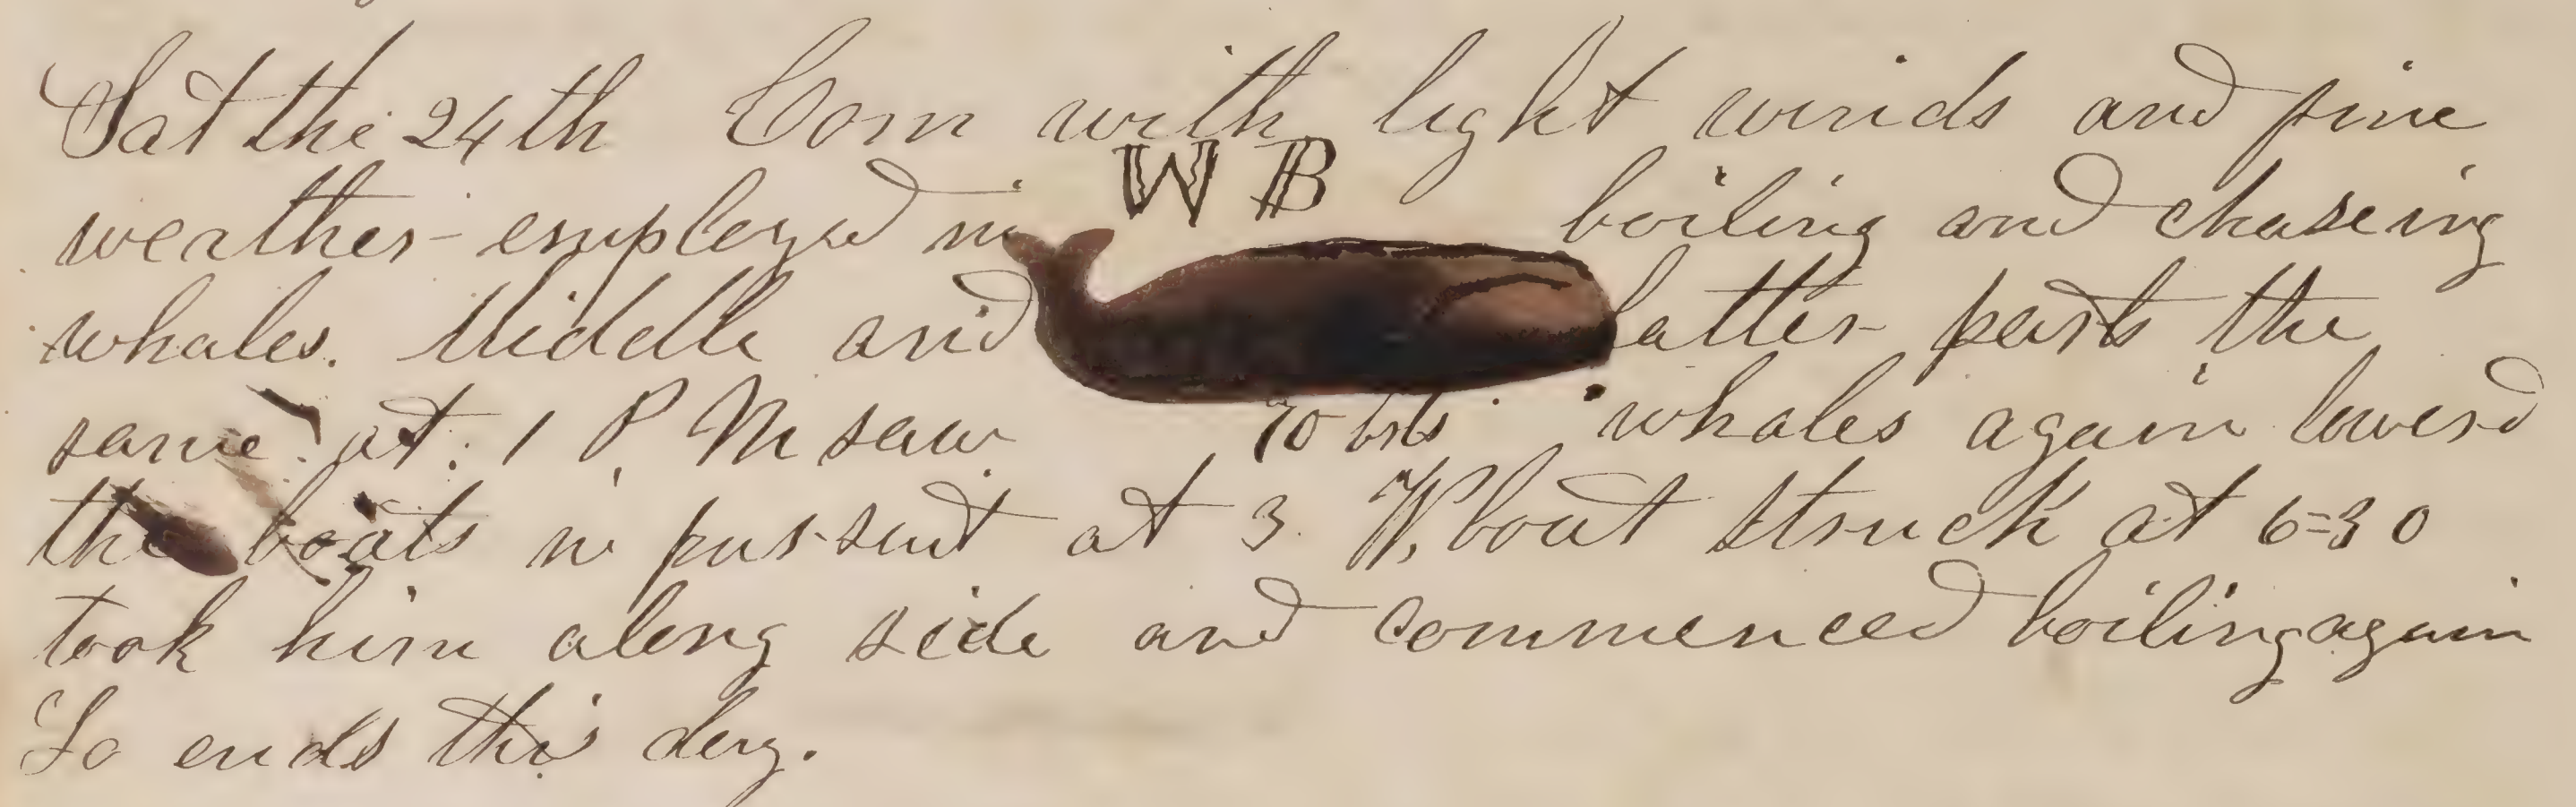 Sat the 24th Com with light winds and fine
W B
weather employed in boiling and chaseing
whales. Middle and latter parts the
same at 1 P M saw whales again lowerd
70 bbls
the boats in pursuit at 3 W, boat struck at 6=30
took him along side and commenced boiling again
So ends this day.